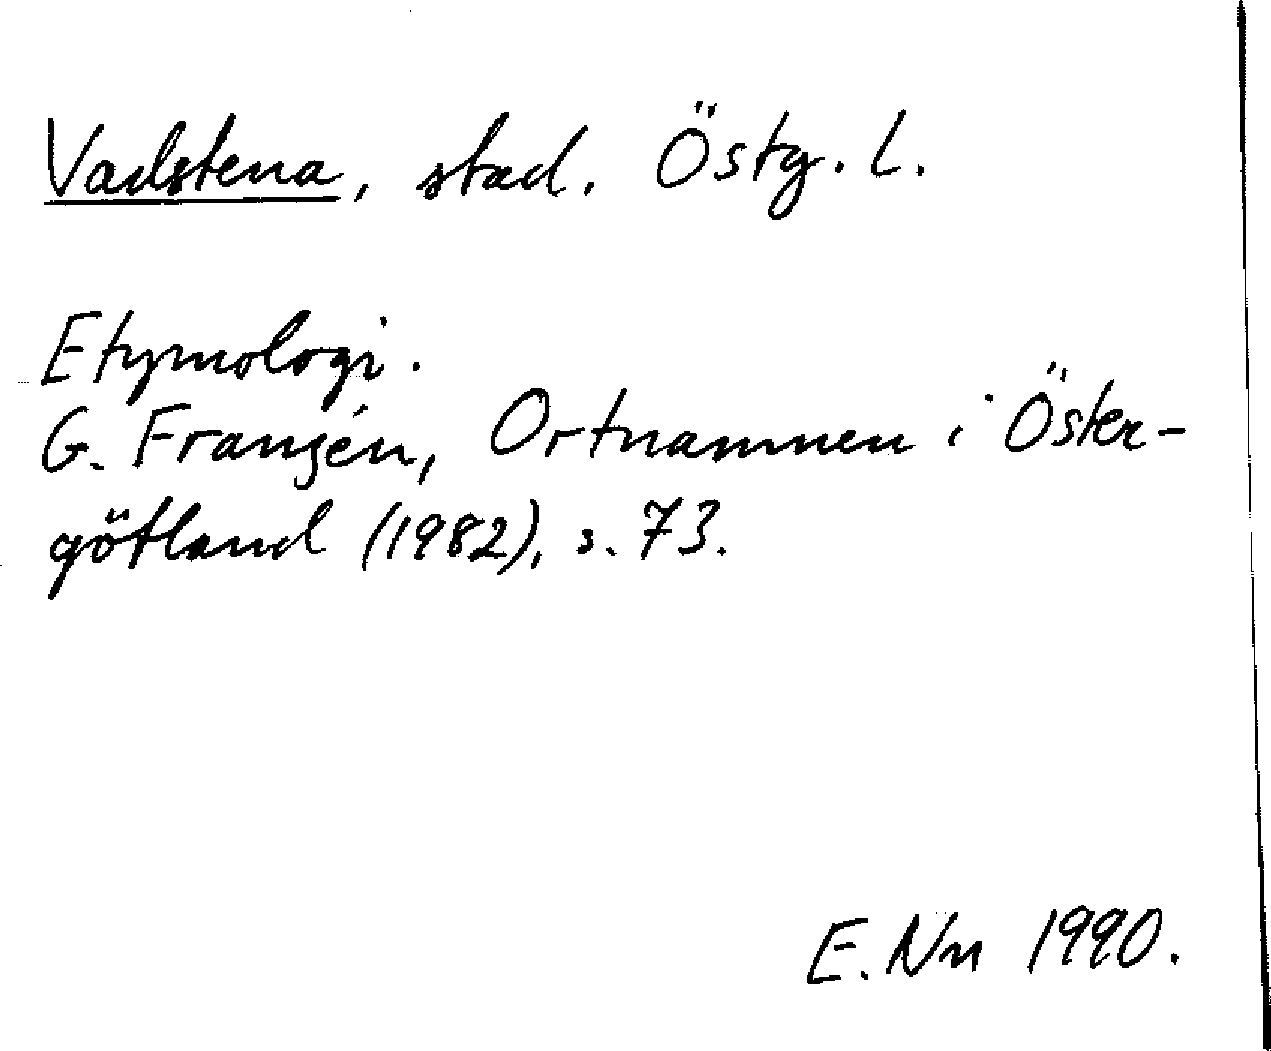 Vadstena, stad. Östg. l.
Etymologi.
G. Franzén, Ortnamnen i Öster-
götland (1982), s. 73.
E. Nn 1990.